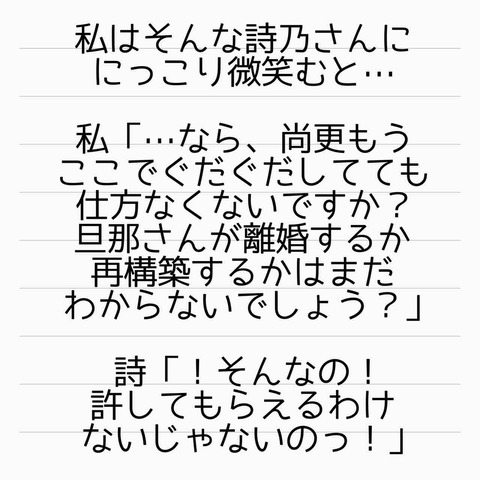 私はそんな詩乃さんに
にっこり微笑むと…
私「…なら、尚更もう
ここでぐだぐだしてても
仕方なくないですか？
旦那さんが離婚するか
再構築するかはまだ
わからないでしょう？」
詩「！そんなの！
許してもらえるわけ
ないじゃないのっ！」